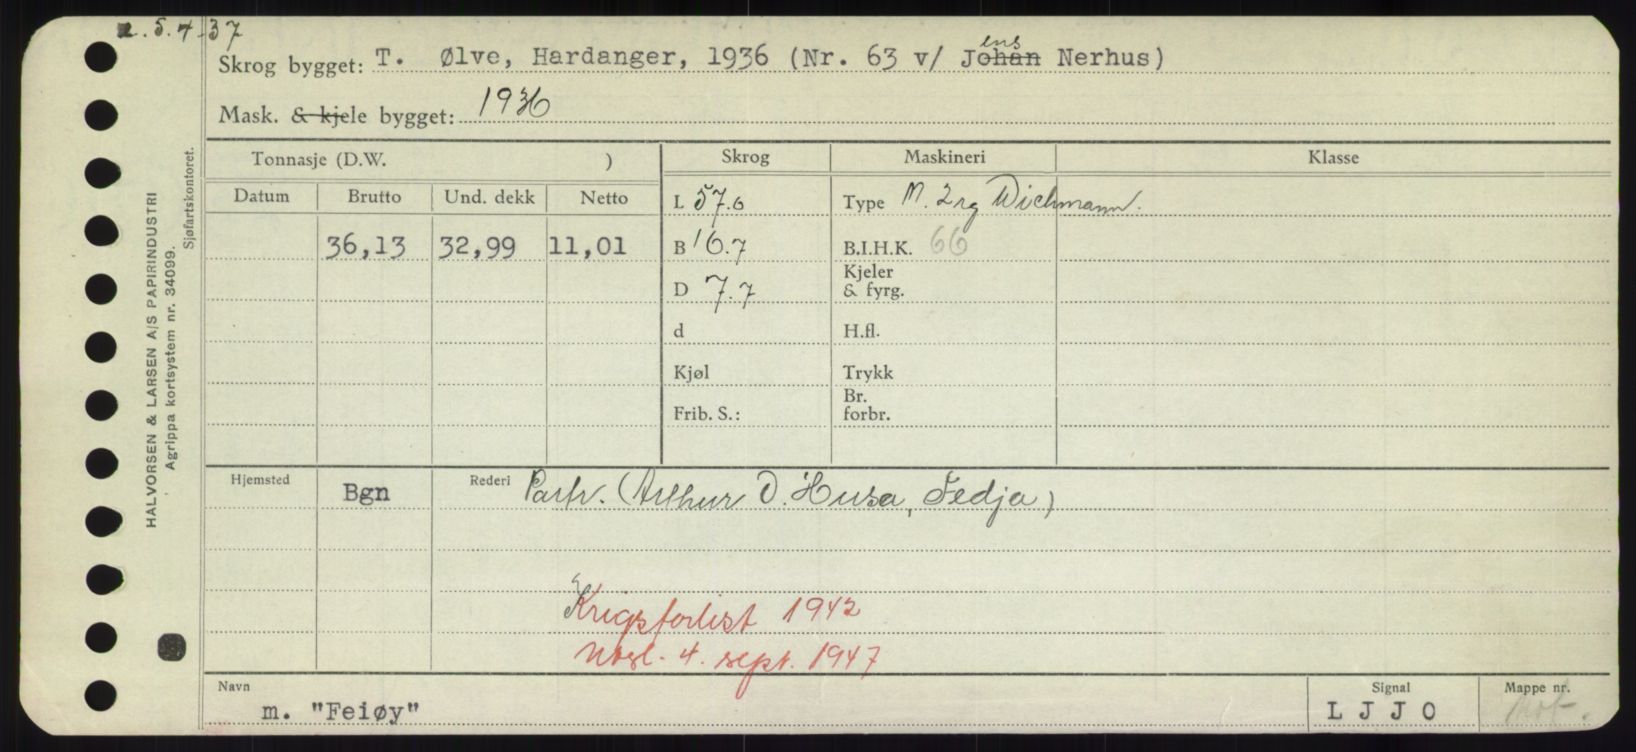 5.4.37
Skrog bygget: T. Ølve, Hardanger, 1936 (Nr. 63 v/ Johan ens Nerhus)
Mask. & kjele bygget: 1936
Tonnasje (D.W. )
Skrog
Maskineri
Klasse
Datum Brutto Und. dekk Netto
36,13 32,99 11,01
L 57.6
B 16.7
D 7.7
d
Kjøl
Frib. S.:
Type M. 2 sg Wichmann.
B.I.H.K. 66
Kjeler
& fyrg.
H.fl.
Trykk
Br.
forbr.
Hjemsted Bgn Rederi Partr. (Arthur D. Husa, Fedja)
Krigsforlist 1942
4. sept. 1947
Navn
m. "Feiøy"
Signal
L J J O
Mappe nr.
Mot.
HALVORSEN & LARSEN A/S PAPIRINDUSTRI
Agrippa kortsystem nr. 34099.
Sjøfartskontoret.